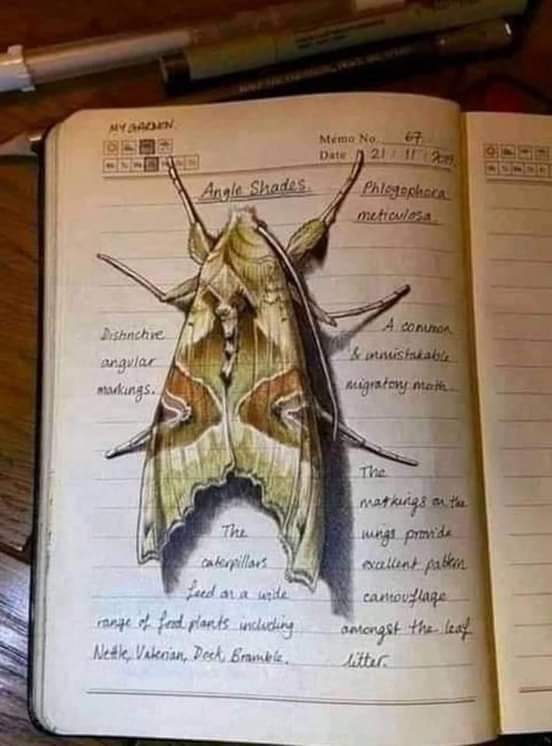 MY GARDEN.
Memo No. 67
Date 21 / 11 / 2019
Angle Shades.
Phlogophora
meticulosa.
Distinctive
angular
markings.
A common
& unmistakable
migratory moth.
The
markings on the
wings provide
excellent pattern
camouflage
amongst the leaf
litter.
The
caterpillars
feed on a wide
range of food plants including
Nettle, Valerian, Dock, Bramble.